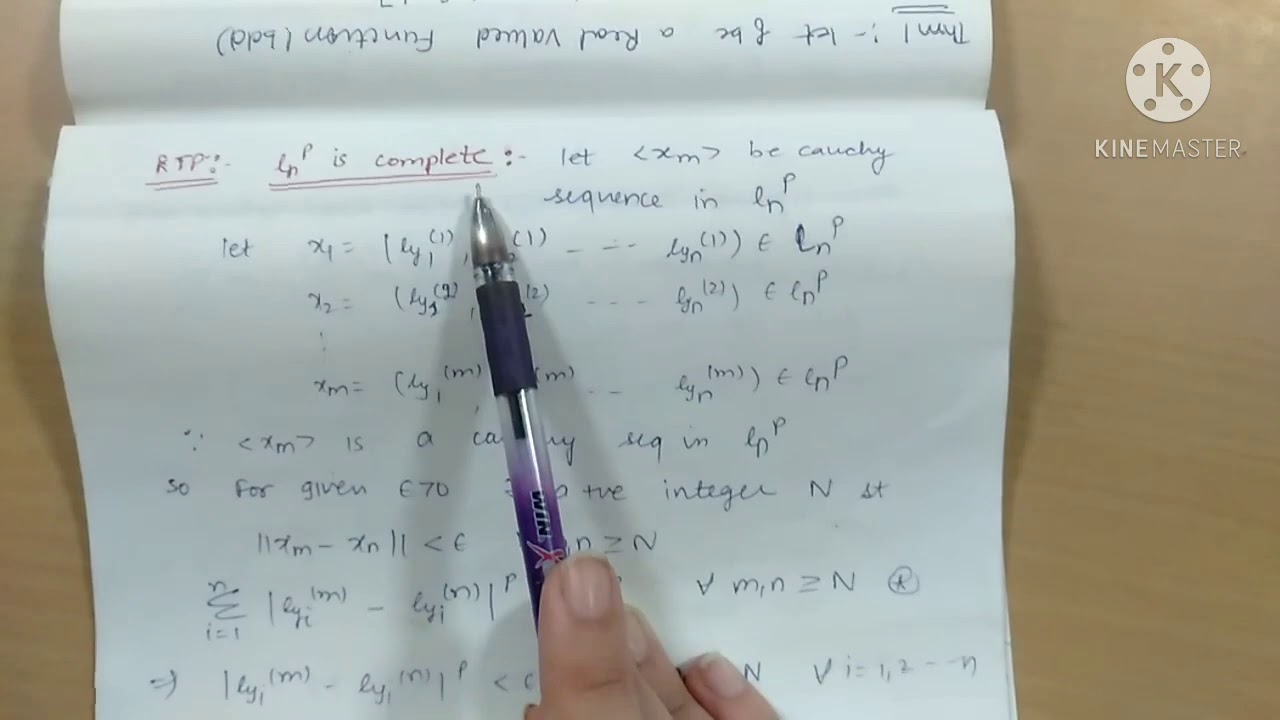 Thm 1 :- let f be a Real Valued Function (bdd)
K
KINEMASTER
RTP:- lₙᵖ is complete :- let <xₘ> be cauchy
sequence in lₙᵖ
let x₁ = (ly₁⁽¹⁾, ⁽¹⁾ - - -- lyₙ⁽¹⁾) ∈ lₙᵖ
x₂ = ( , ⁽²⁾ - - - - lyₙ⁽²⁾) ∈ lₙᵖ
⋮
xₘ = (ly₁⁽ᵐ⁾, ⁽ᵐ⁾ - - lyₙ⁽ᵐ⁾) ∈ lₙᵖ
∵ <xₘ> is a seq in lₙᵖ
so For given ∈>0 +ve integer N st
||xₘ - xₙ|| < ∈ ,n ≥ N
ⁿΣᵢ₌₁ |lyᵢ⁽ᵐ⁾ - lyᵢ⁽ⁿ⁾|ᵖ ∀ m,n ≥ N ⊛
⇒ |lyᵢ⁽ᵐ⁾ - lyᵢ⁽ⁿ⁾|ᵖ < N ∀ i = 1,2 --n
WIN